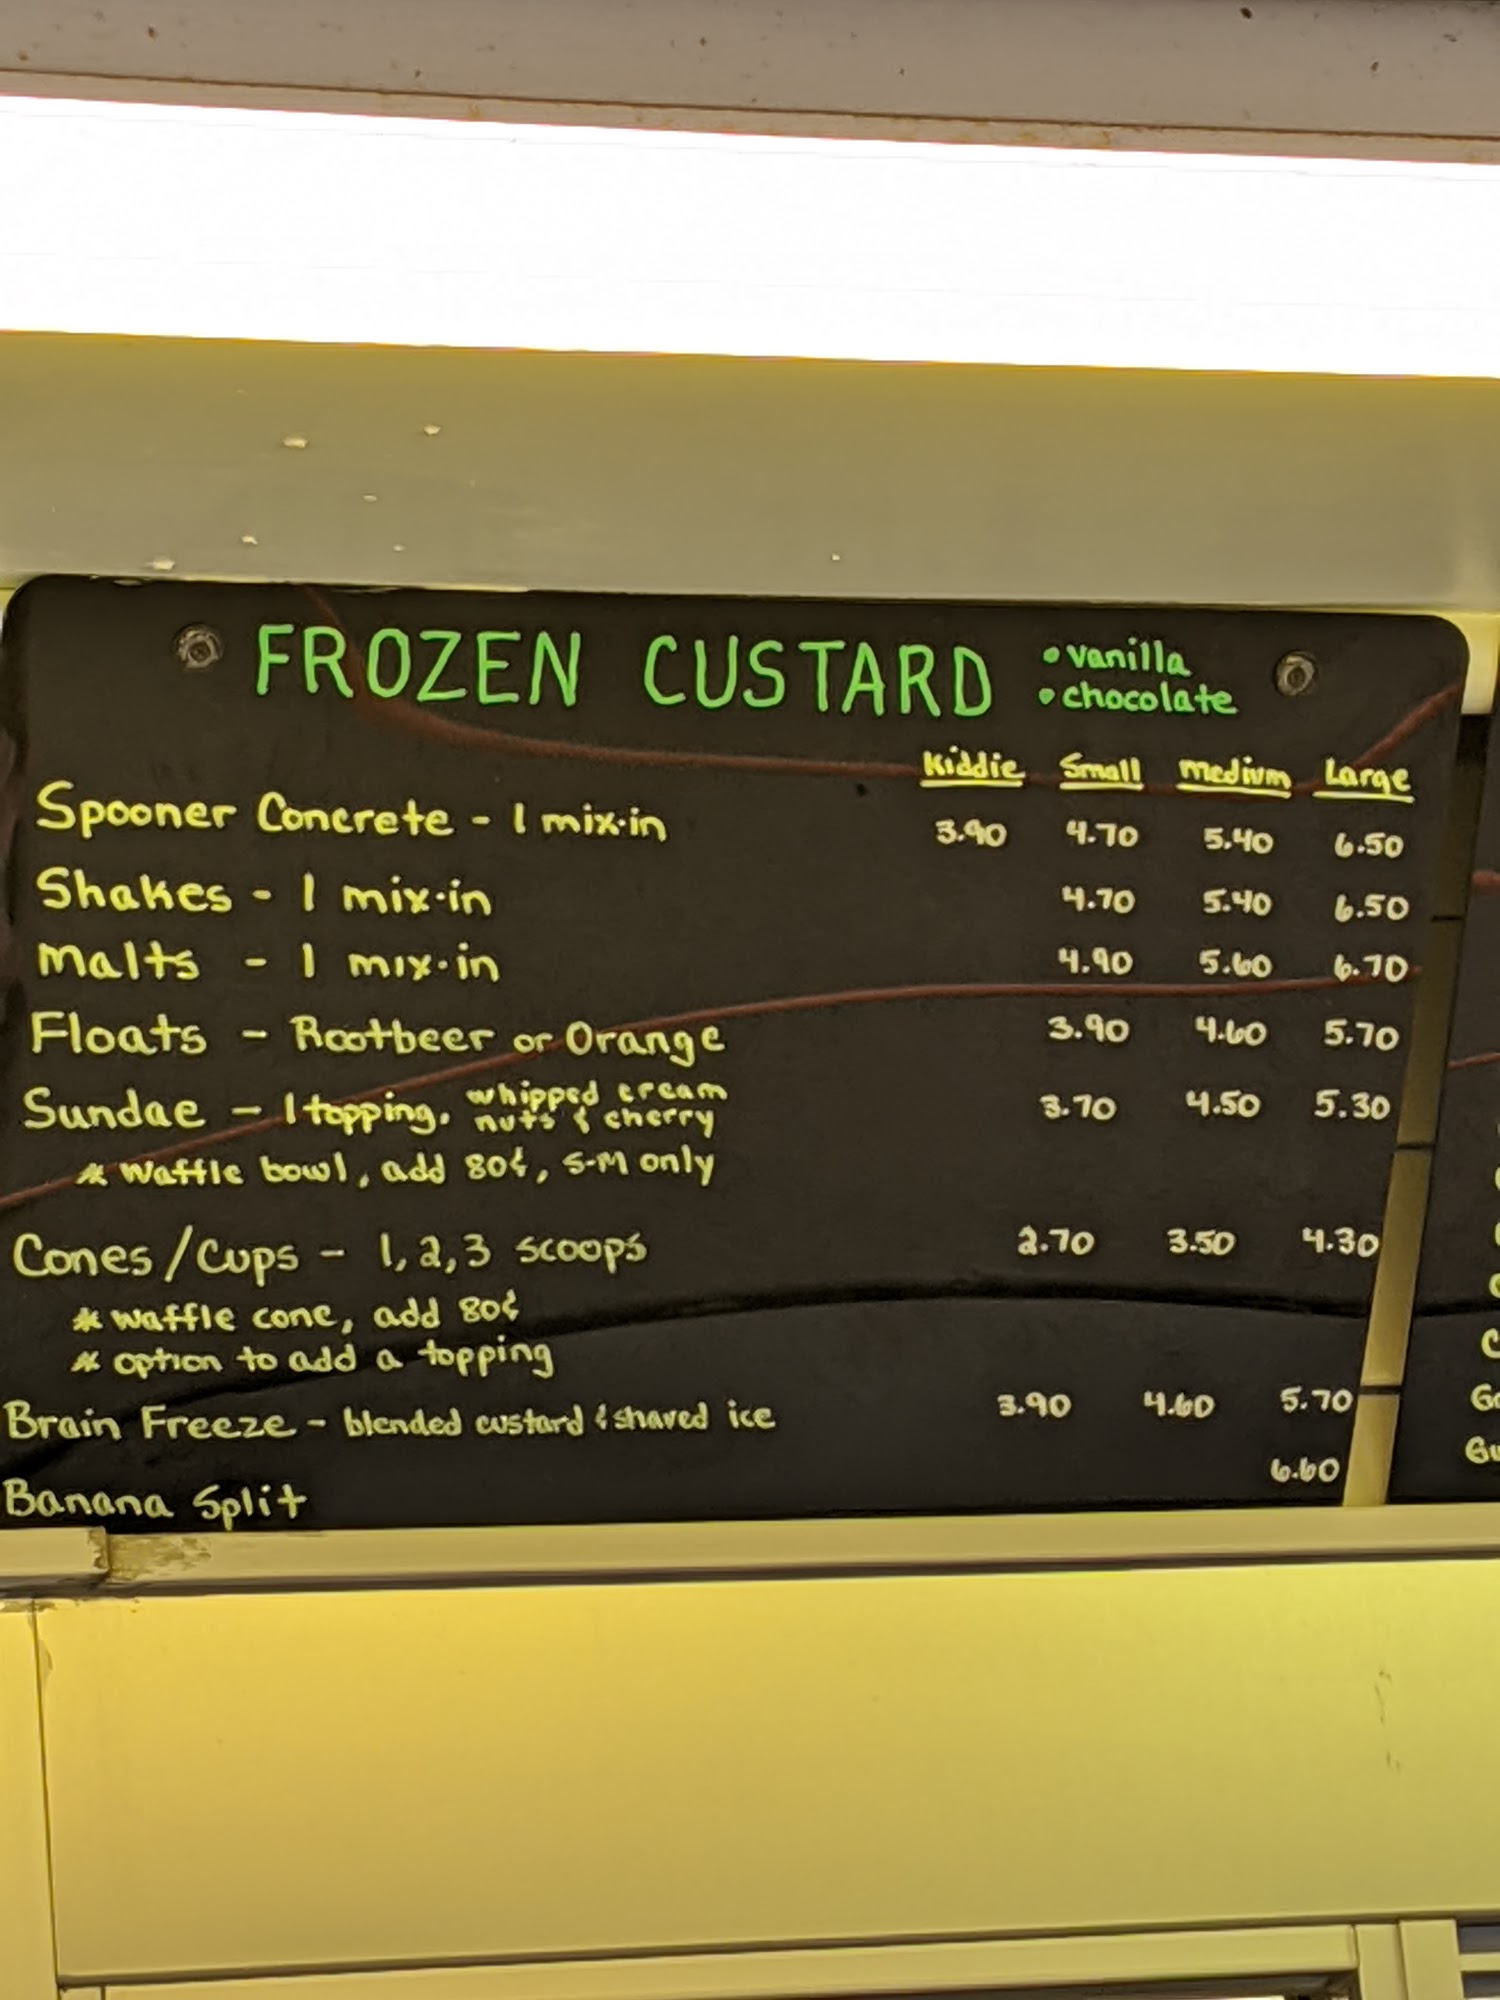 FROZEN CUSTARD • vanilla
• chocolate
Kiddie Small Medium Large
Spooner Concrete - 1 mix-in 3.90 4.70 5.40 6.50
Shakes - 1 mix-in 4.70 5.40 6.50
Malts - 1 mix-in 4.90 5.60 6.70
Floats - Rootbeer or Orange 3.90 4.60 5.70
Sundae - 1 topping, whipped cream 3.70 4.50 5.30
nuts & cherry
* Waffle bowl, add 80¢, S-M only
Cones/Cups - 1, 2, 3 scoops 2.70 3.50 4.30
* waffle cone, add 80¢
* option to add a topping
Brain Freeze - blended custard & shaved ice 3.90 4.60 5.70
Banana Split 6.60